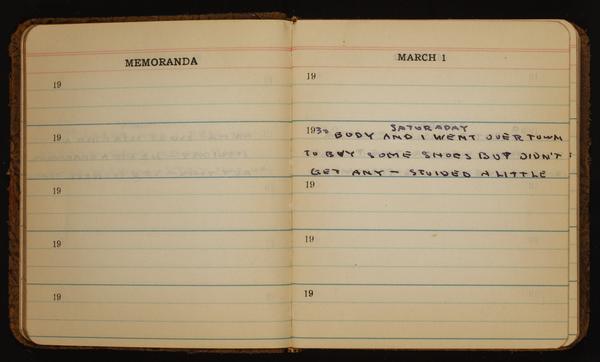 MEMORANDA
19
19
19
19
19
MARCH 1
19
1930 SATURADAY
BUDY AND I WENT OVER TOWN
TO BUY SOME SHOES BUT DIDN'T
GET ANY — STUIDED A LITTLE
19
19
19